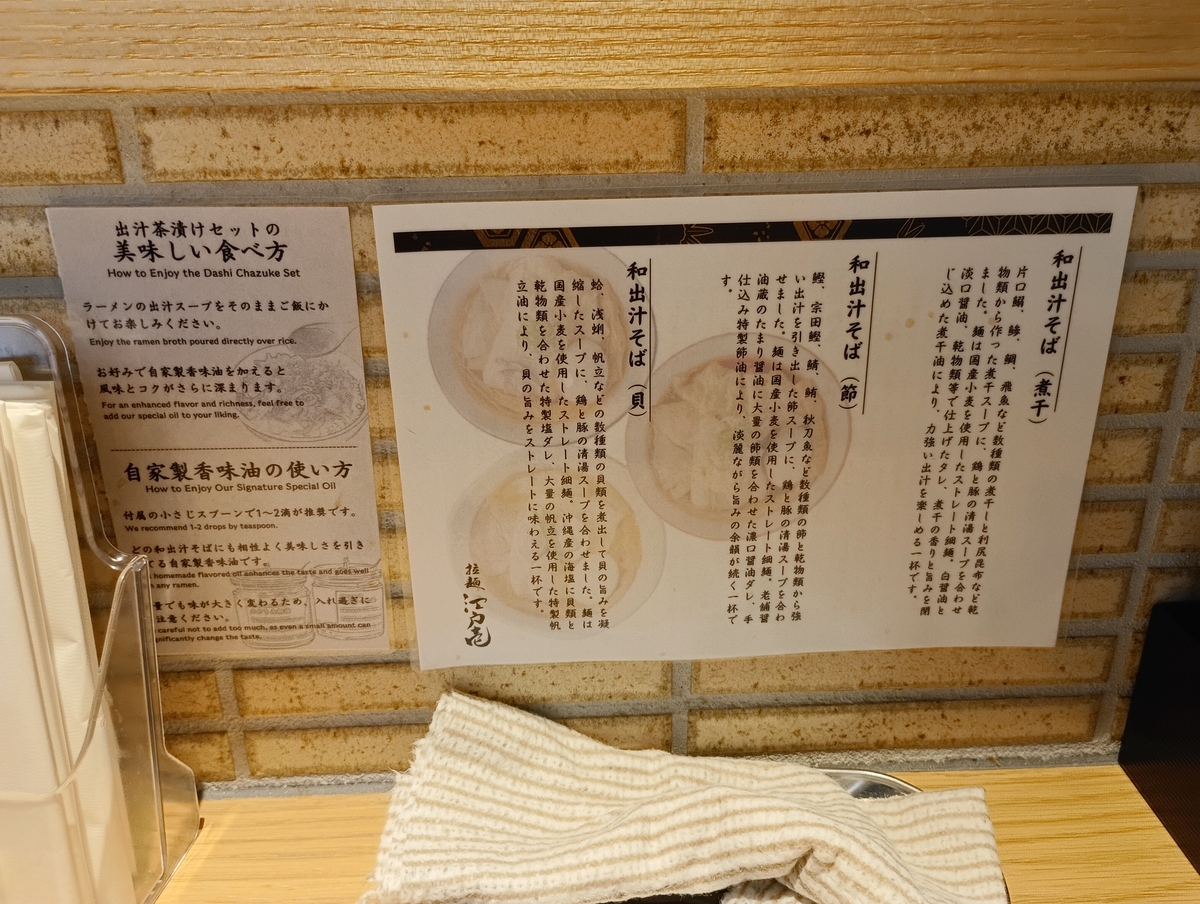 出汁茶漬けセットの
美味しい食べ方
How to Enjoy the Dashi Chazuke Set
ラーメンの出汁スープをそのままご飯にか
けてお楽しみください。
Enjoy the ramen broth poured directly over rice.
お好みで自家製香味油を加えると
風味とコクがさらに深まります。
For an enhanced flavor and richness, feel free to
add our special oil to your liking.
自家製香味油の使い方
How to Enjoy Our Signature Special Oil
付属の小さじスプーンで1〜2滴が推奨です。
We recommend 1-2 drops by teaspoon.
どの和出汁そばにも相性よく美味しさを引き
てる自家製香味油です。
homemade flavored oil enhances the taste and goes well
any ramen.
量でも味が大きく変わるため、入れ過ぎに
注意ください。
careful not to add too much, as even a small amount can
gnificantly change the taste.
和出汁そば（煮干）
片口鰯、鯵、鯛、飛魚など数種類の煮干しと利尻昆布など乾
物類から作った煮干スープに、鶏と豚の清湯スープを合わせ
ました。麺は国産小麦を使用したストレート細麺。白醤油と
淡口醤油、乾物類等で仕上げたタレ、煮干の香りと旨みを閉
じ込めた煮干油により、力強い出汁を楽しめる一杯です。
和出汁そば（節）
鰹、宗田鰹、鯖、鮪、秋刀魚など数種類の節と乾物類から強
い出汁を引き出した節スープに、鶏と豚の清湯スープを合わ
せました。麺は国産小麦を使用したストレート細麺。老舗醤
油蔵のたまり醤油に大量の節類を合わせた濃口醤油ダレ、手
仕込み特製節油により、淡麗ながら旨みの余韻が続く一杯で
す。
和出汁そば（貝）
蛤、浅蜊、帆立などの数種類の貝類を煮出して貝の旨みを凝
縮したスープに、鶏と豚の清湯スープを合わせました。麺は
国産小麦を使用したストレート細麺。沖縄産の海塩に貝類と
乾物類を合わせた特製塩ダレ、大量の帆立を使用した特製帆
立油により、貝の旨みをストレートに味わえる一杯です。
拉麺 江戸壱